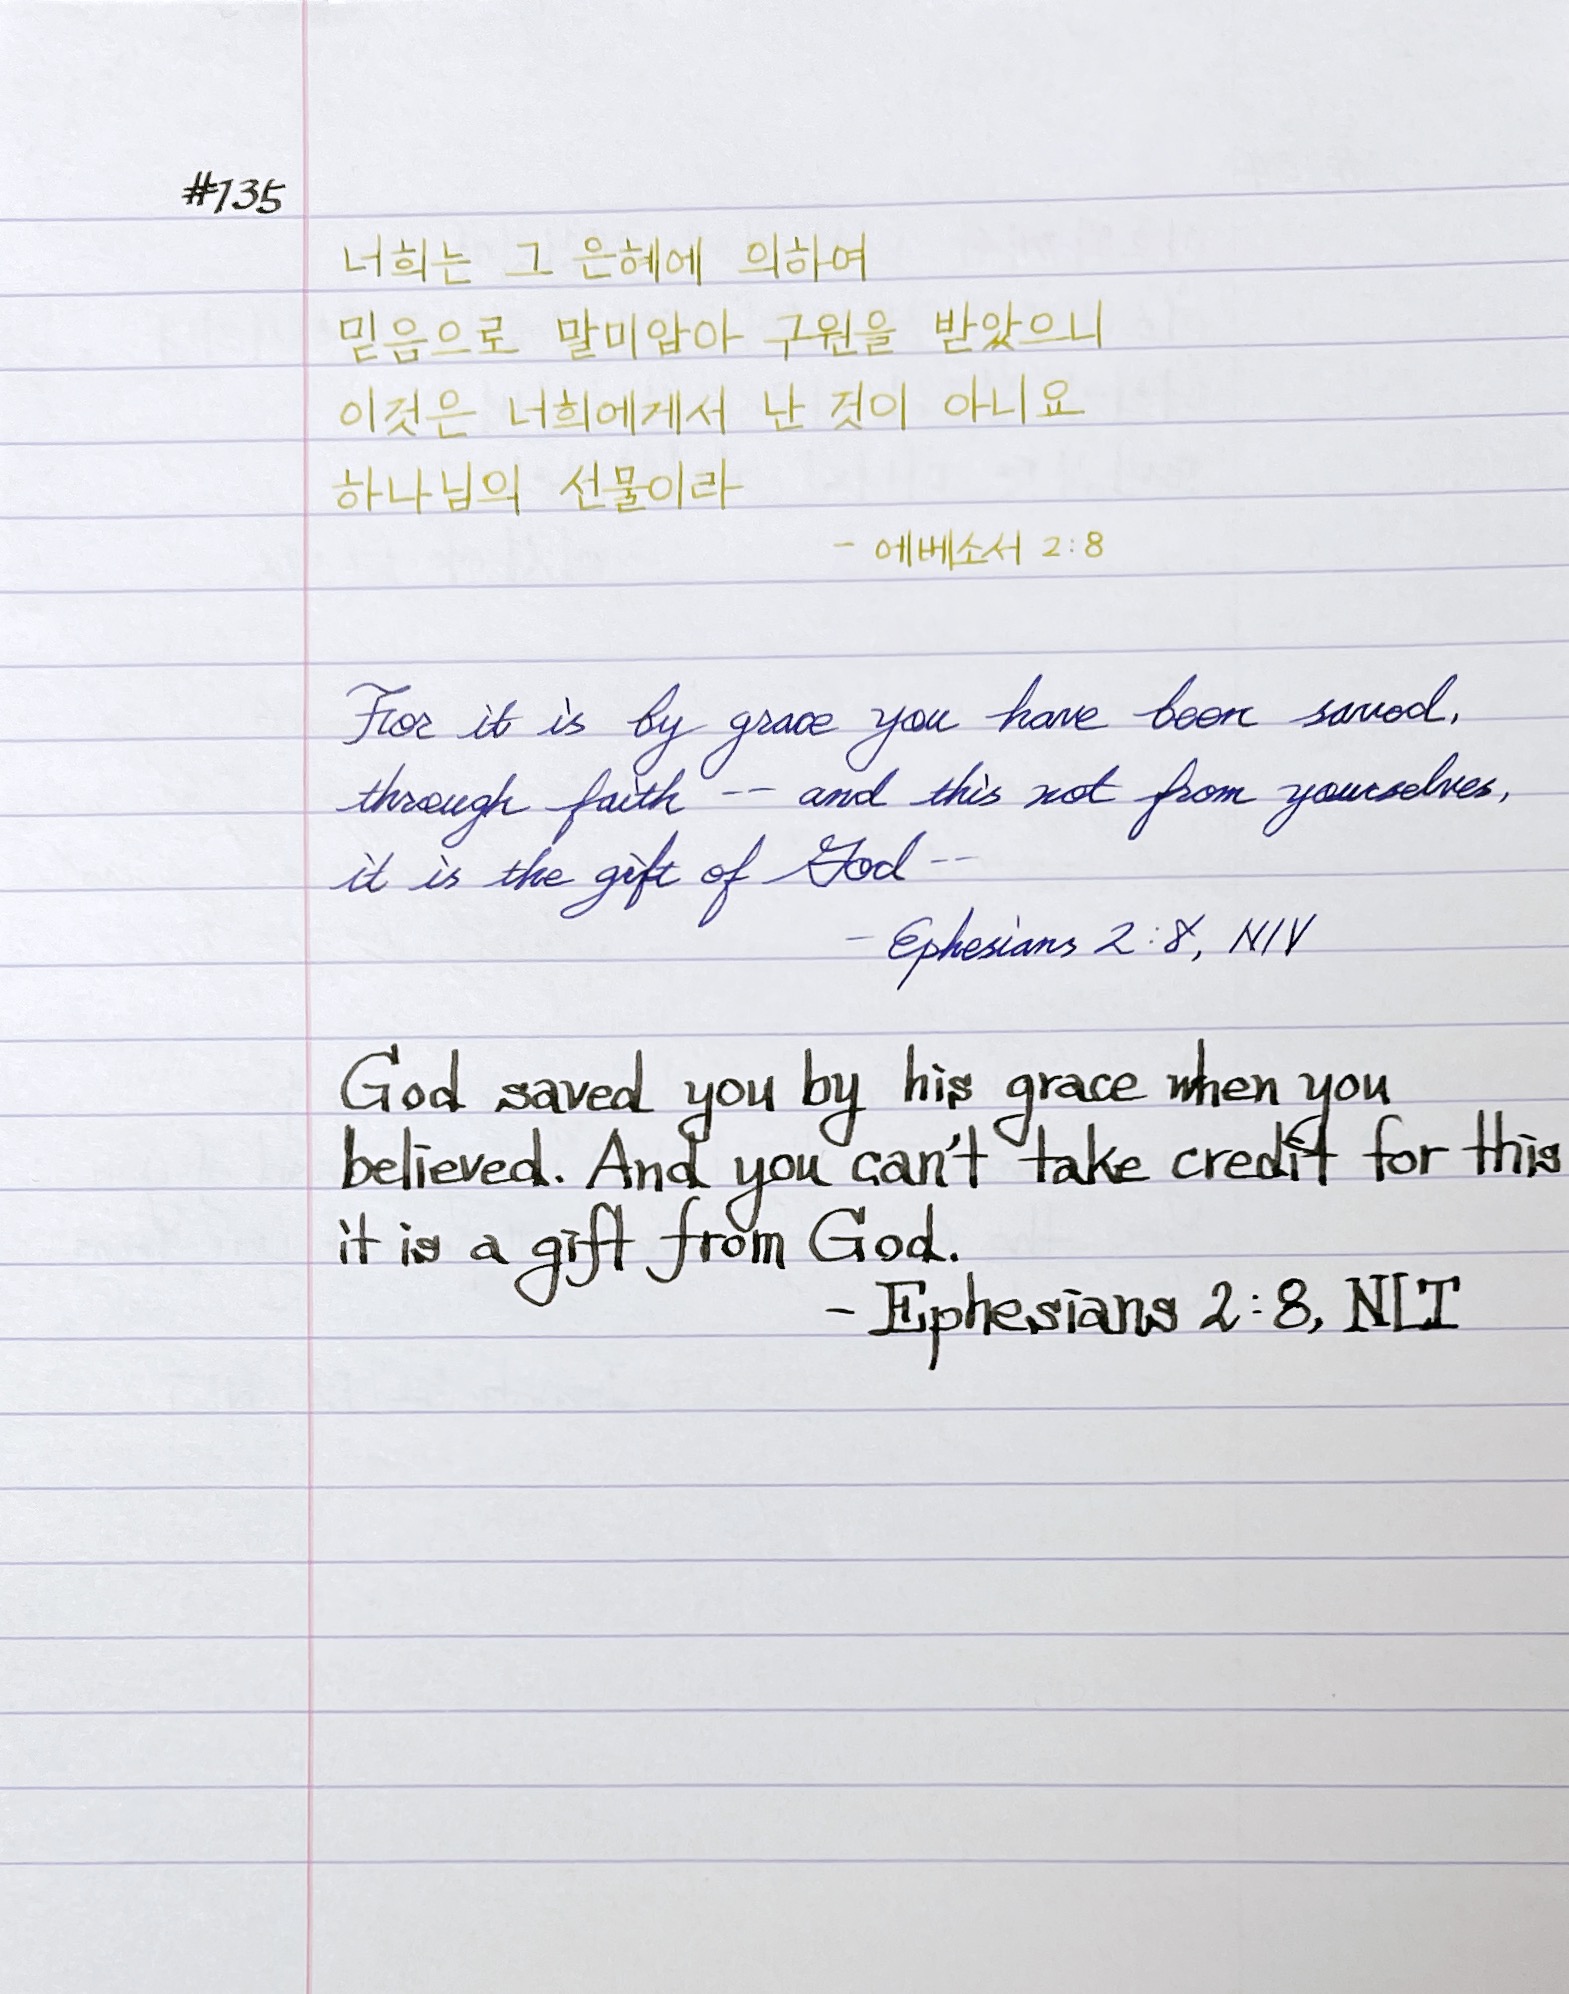 #135
너희는 그 은혜에 의하여
믿음으로 말미암아 구원을 받았으니
이것은 너희에게서 난 것이 아니요
하나님의 선물이라
- 에베소서 2:8
For it is by grace you have been saved,
through faith -- and this not from yourselves,
it is the gift of God --
- Ephesians 2:8, NIV
God saved you by his grace when you
believed. And you can't take credit for this
it is a gift from God.
- Ephesians 2:8, NLT